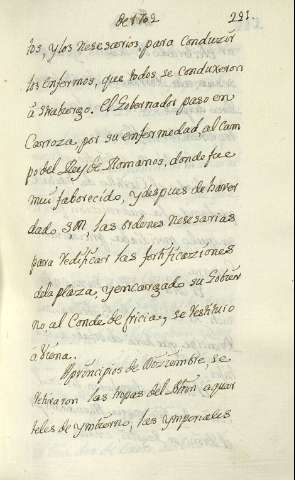 de 1702    221.
tos, y los Nesesarios, para Conduzir
los Enfermos, que todos se Conduxeron
á Strasburgo. El Gobernador paso en
Carroza, por su enfermedad, al Cam
po del Rey de Romanos, donde fue
mui faborecido, y despues de haver
dado, S,M, las ordenes Nesesarias
para Redificar las fortificaziones
dela plaza, y encargado su Gobier
no, al Conde de fricia, se Restituio
á Viena.
A principios de Noviembre, se
Retiraron las tropas del Rhin a quar
teles de ymbierno, las ymperiales